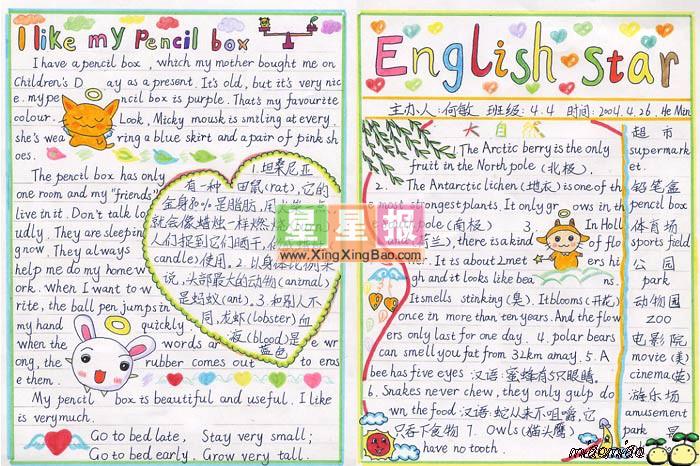 I like my Pencil box
I have a pencil box, which my mother bought me on
Children's D ay as a present. It's old, but it's very nic
e. my pe ncil box is purple. That's my favourite
colour. Look, Micky mowsk is smiling at every.
she's wea ring a blue skirt and a pair of pink sh
oes.
The pencil box has only
one room and my "friends"
live in it. Don't talk lo
udly. They are sleeping
now. They always
help me do my home w
ork. When I want to w
rite, the ball pen jumps in
my hand quickly
when the words ar e wr
ong, the rubber comes out to eras
e them.
My pencil box is beautiful and useful. I like
is very much.
Go to bed late, Stay very small;
Go to bed early. Grow very tall.
1. 坦桑尼亚
有一种 田鼠(rat), 它的
全身80%是脂肪, 用
就会像蜡烛一样燃烧
人们捉到它们晒干,
candle)使用。2. 以身体比例来
说, 头部最大的动物(animal)
是蚂蚁(ant)。3. 和别人不
同, 龙虾(lobster)血
液(blood)是
蓝色
English Star
主办人: 何敏 班级: 4.4 时间: 2004.4.26. He Min
大自然
1. The Arctic berry is the only
fruit in the North pole (北极).
2. The Antarctic lichen (地衣) is one of the
most strongest plants. It only grows in th
pole (南极) 3. In Holl
兰), there is a kind of flo
er. It is about 2 met ers hi
gh and it looks like bea ns.
It smells stinking (臭). It blooms (开花)
once in more than ten years. And the flow
ers only last for one day. 4. polar bears
can smell you fat from 32km away. 5. A
bee has five eyes 汉语: 蜜蜂有5只眼睛.
6. Snakes never chew, they only gulp do
wn the food 汉语: 蛇从来不咀嚼, 它
只吞下食物 7. Owls (猫头鹰)
have no tooth.
超市
supermark
et.
铅笔盒
pencil box
体育场
sports field
公园
park
动物园
zoo
电影院
movie (美)
cinema (英)
游乐场
amusement
park
星星报
www.XingXingBao.com